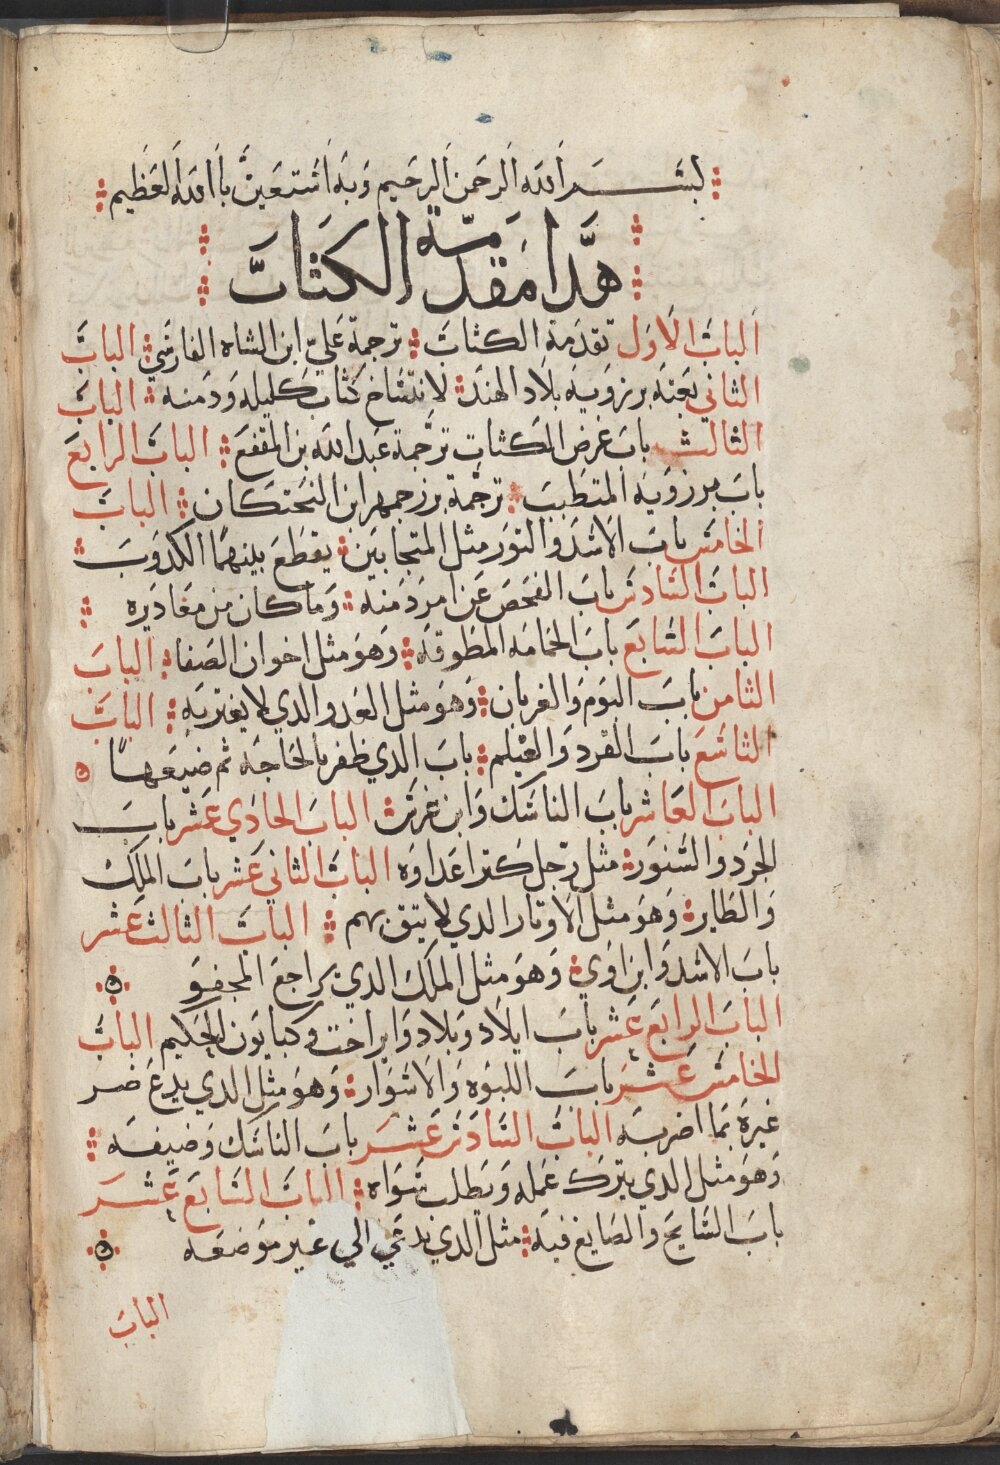 بسم الله الرحمن الرحيم وبه استعين بالله العظيم
هدا مقدمة الكتاب
الباب الاول تقدمة الكتاب ترجمة علي ابن الشاه الفارسي الباب
الثاني بعثه برزويه بلاد الهند لانتساخ كتاب كليله ودمنه الباب
الثالث باب غرض الكتاب ترجمة عبد الله بن المقفع الباب الرابع
باب برزويه المتطبب ترجمة بزرجمهر ابن البختكان الباب
الخامس باب الاسد والتور مثل المتحابين يقطع بينهما الكدوب
الباب السادس باب الفحص عن امر دمنه وما كان من معاديره
الباب السابع باب الحمامه المطوقه وهو مثل اخوان الصفا الباب
الثامن باب البوم والغربان وهو مثل العدو الدي لا يغتر به الباب
التاسع باب القرد والغيلم باب الدي ظفر بالحاجه ثم ضيعها
الباب العاشر باب الناسك وابن عرس الباب الحادي عشر باب
الجرد والسنور مثل رجل كتر اعداوه الباب الثاني عشر باب الملك
والطاير وهو مثل الاوتار الدي لا يتق بهم الباب الثالث عشر
باب الاسد وابن اوي وهو مثل الملك الدي يراجع المجفو
الباب الرابع عشر باب ايلاد وبلاد وايراخت وكبايون الحكيم الباب
الخامس عشر باب اللبوه والاسوار وهو مثل الدي يدع ضر
غيره بما اضر به الباب السادس عشر باب الناسك وضيفه
وهو مثل الدي يترك عمله ويطلب سواه الباب السابع عشر
باب السايح والصايغ فيه مثل الدي يدعي الي غير موضعه
الباب